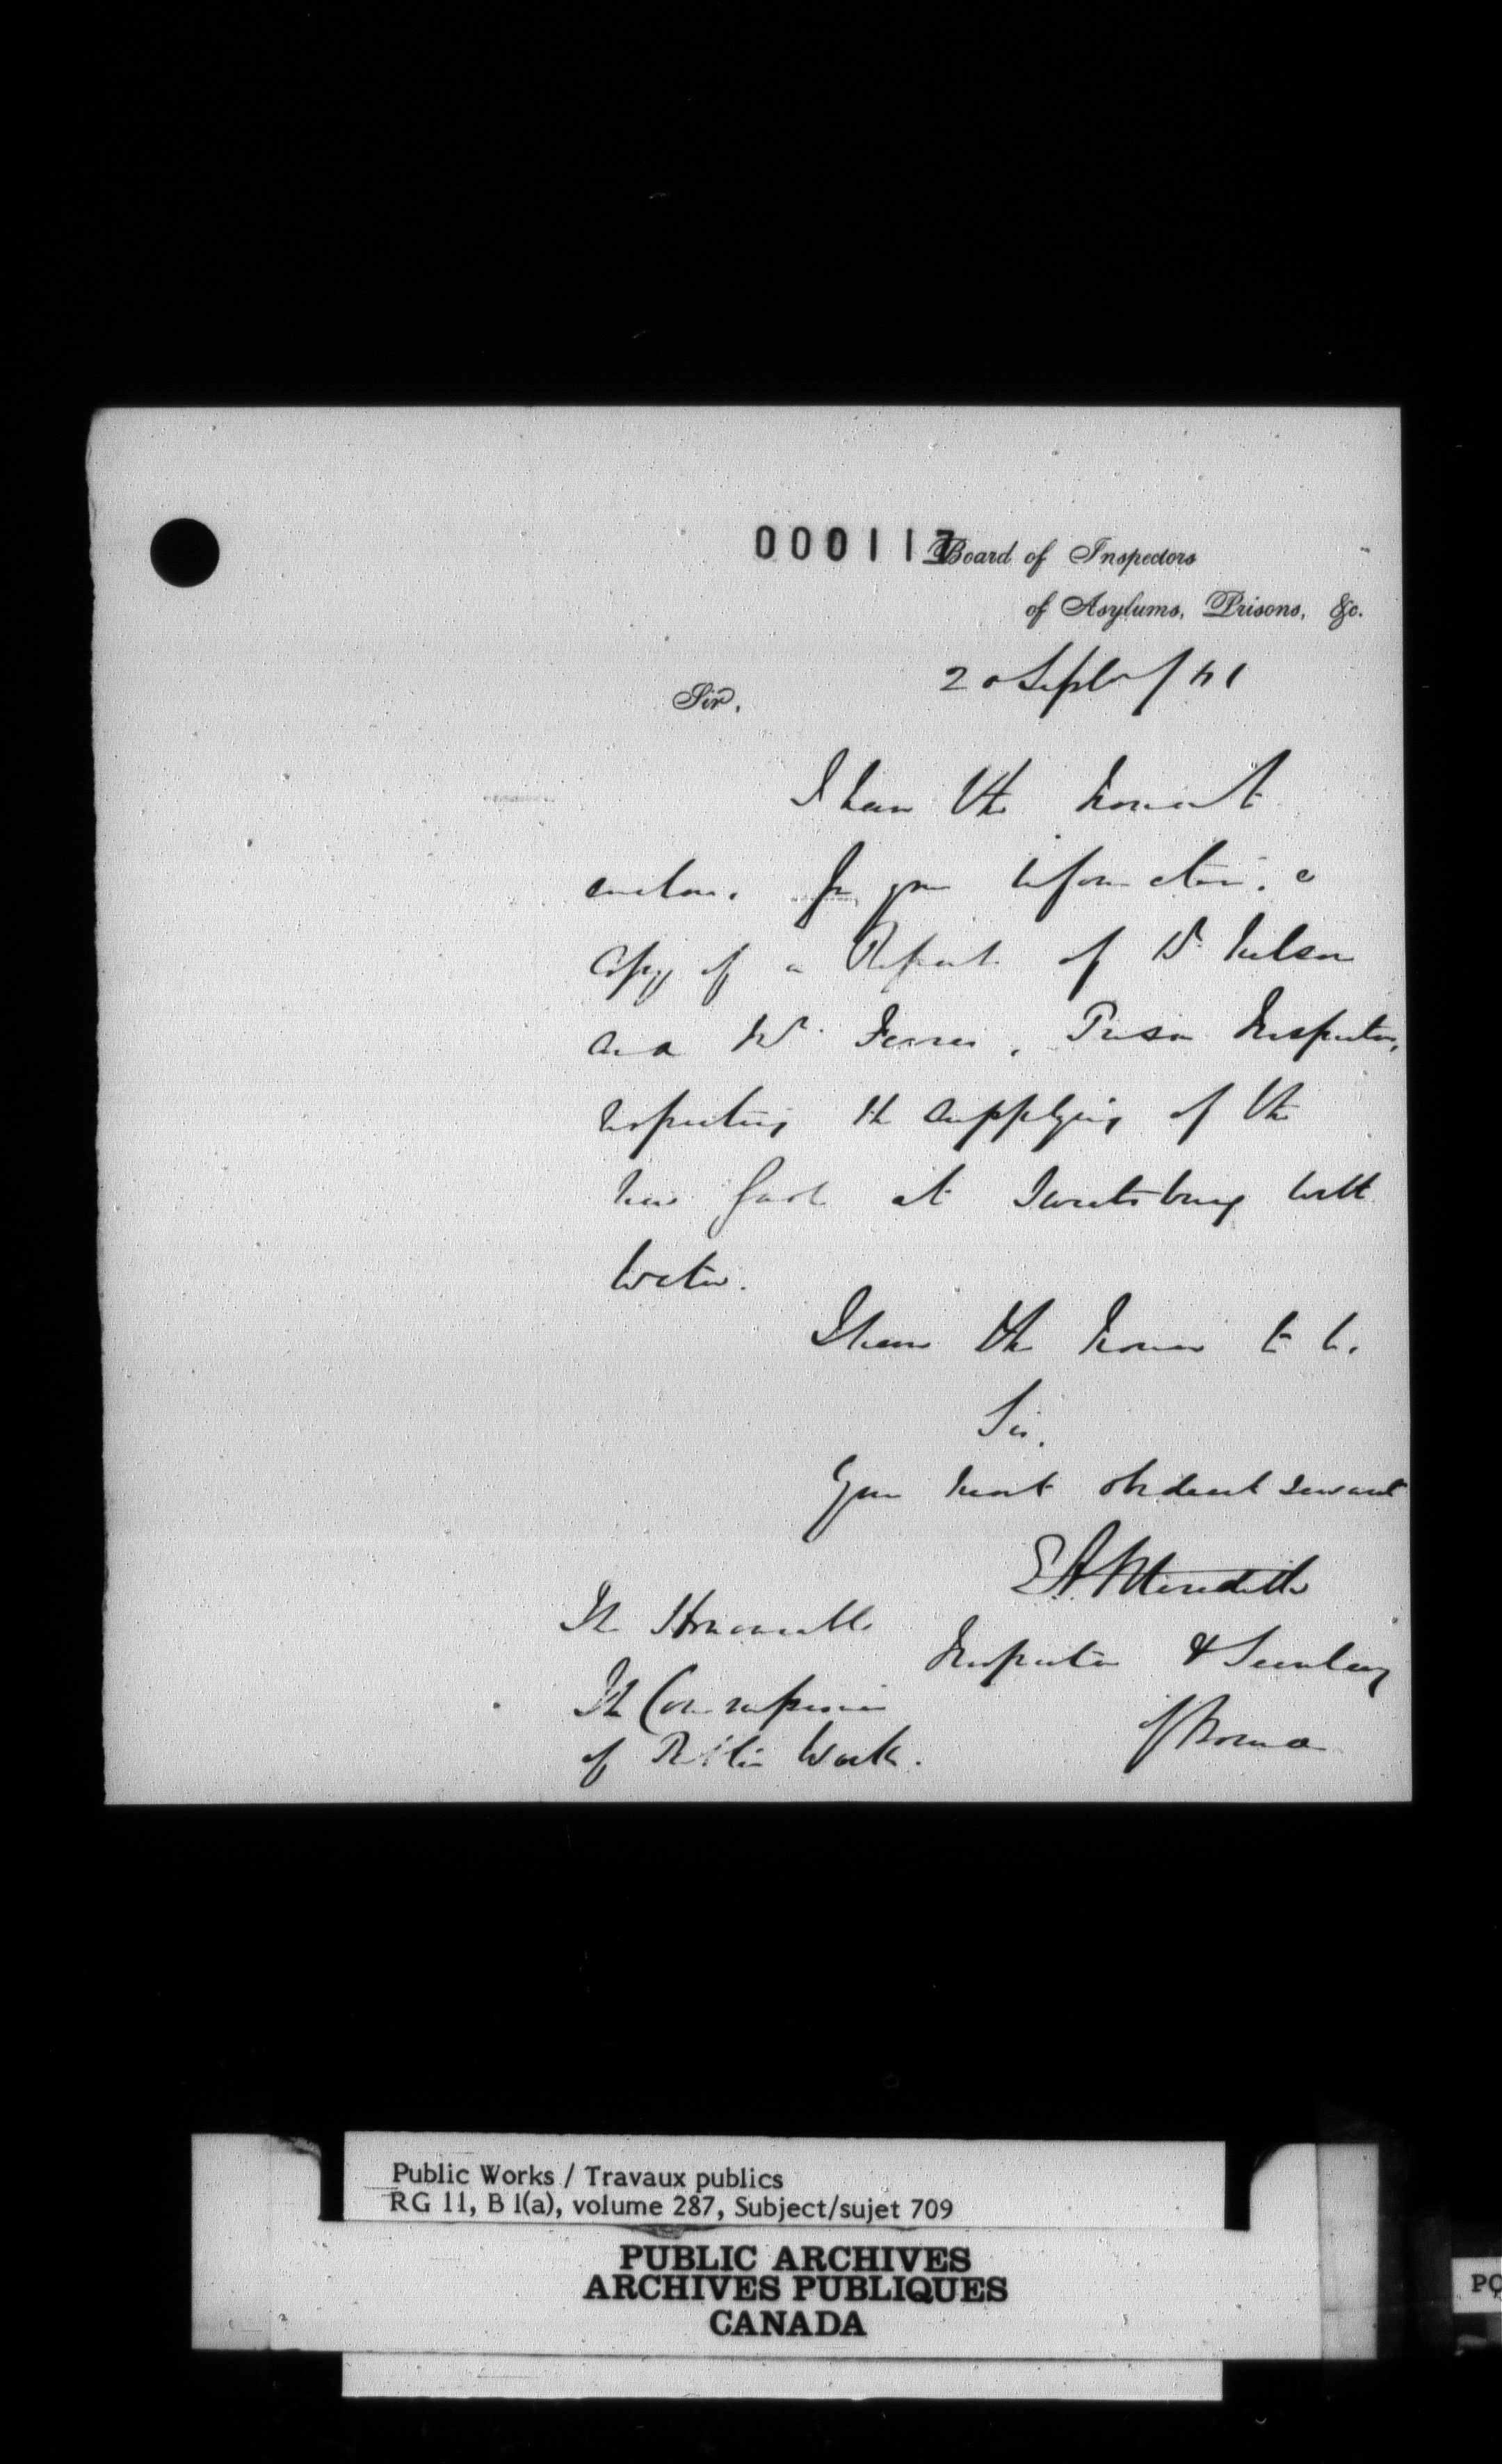 000117
Board of Inspectors
of Asylums, Prisons, &c.
20 Sept / 61
Sir,
I have the honor to
enclose for your information, a
Copy of a Report of Dr Nelson
and Mr Ferres, Prison Inspectors,
respecting the supplying of the
new Gaol at Sweetsburg with
Water.
I have the honor to be
Sir,
Your most obedient servant
E A Meredith
Inspector & Secretary
of Board
The Honorable
The Commissioner
of Public Works.
Public Works / Travaux publics
RG 11, B 1(a), volume 287, Subject/sujet 709
PUBLIC ARCHIVES
ARCHIVES PUBLIQUES
CANADA